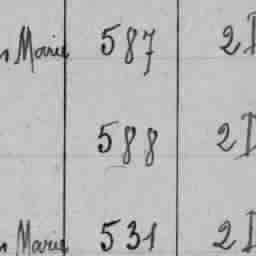 n Marie 587 2I
588 2I
n Marie 531 2I